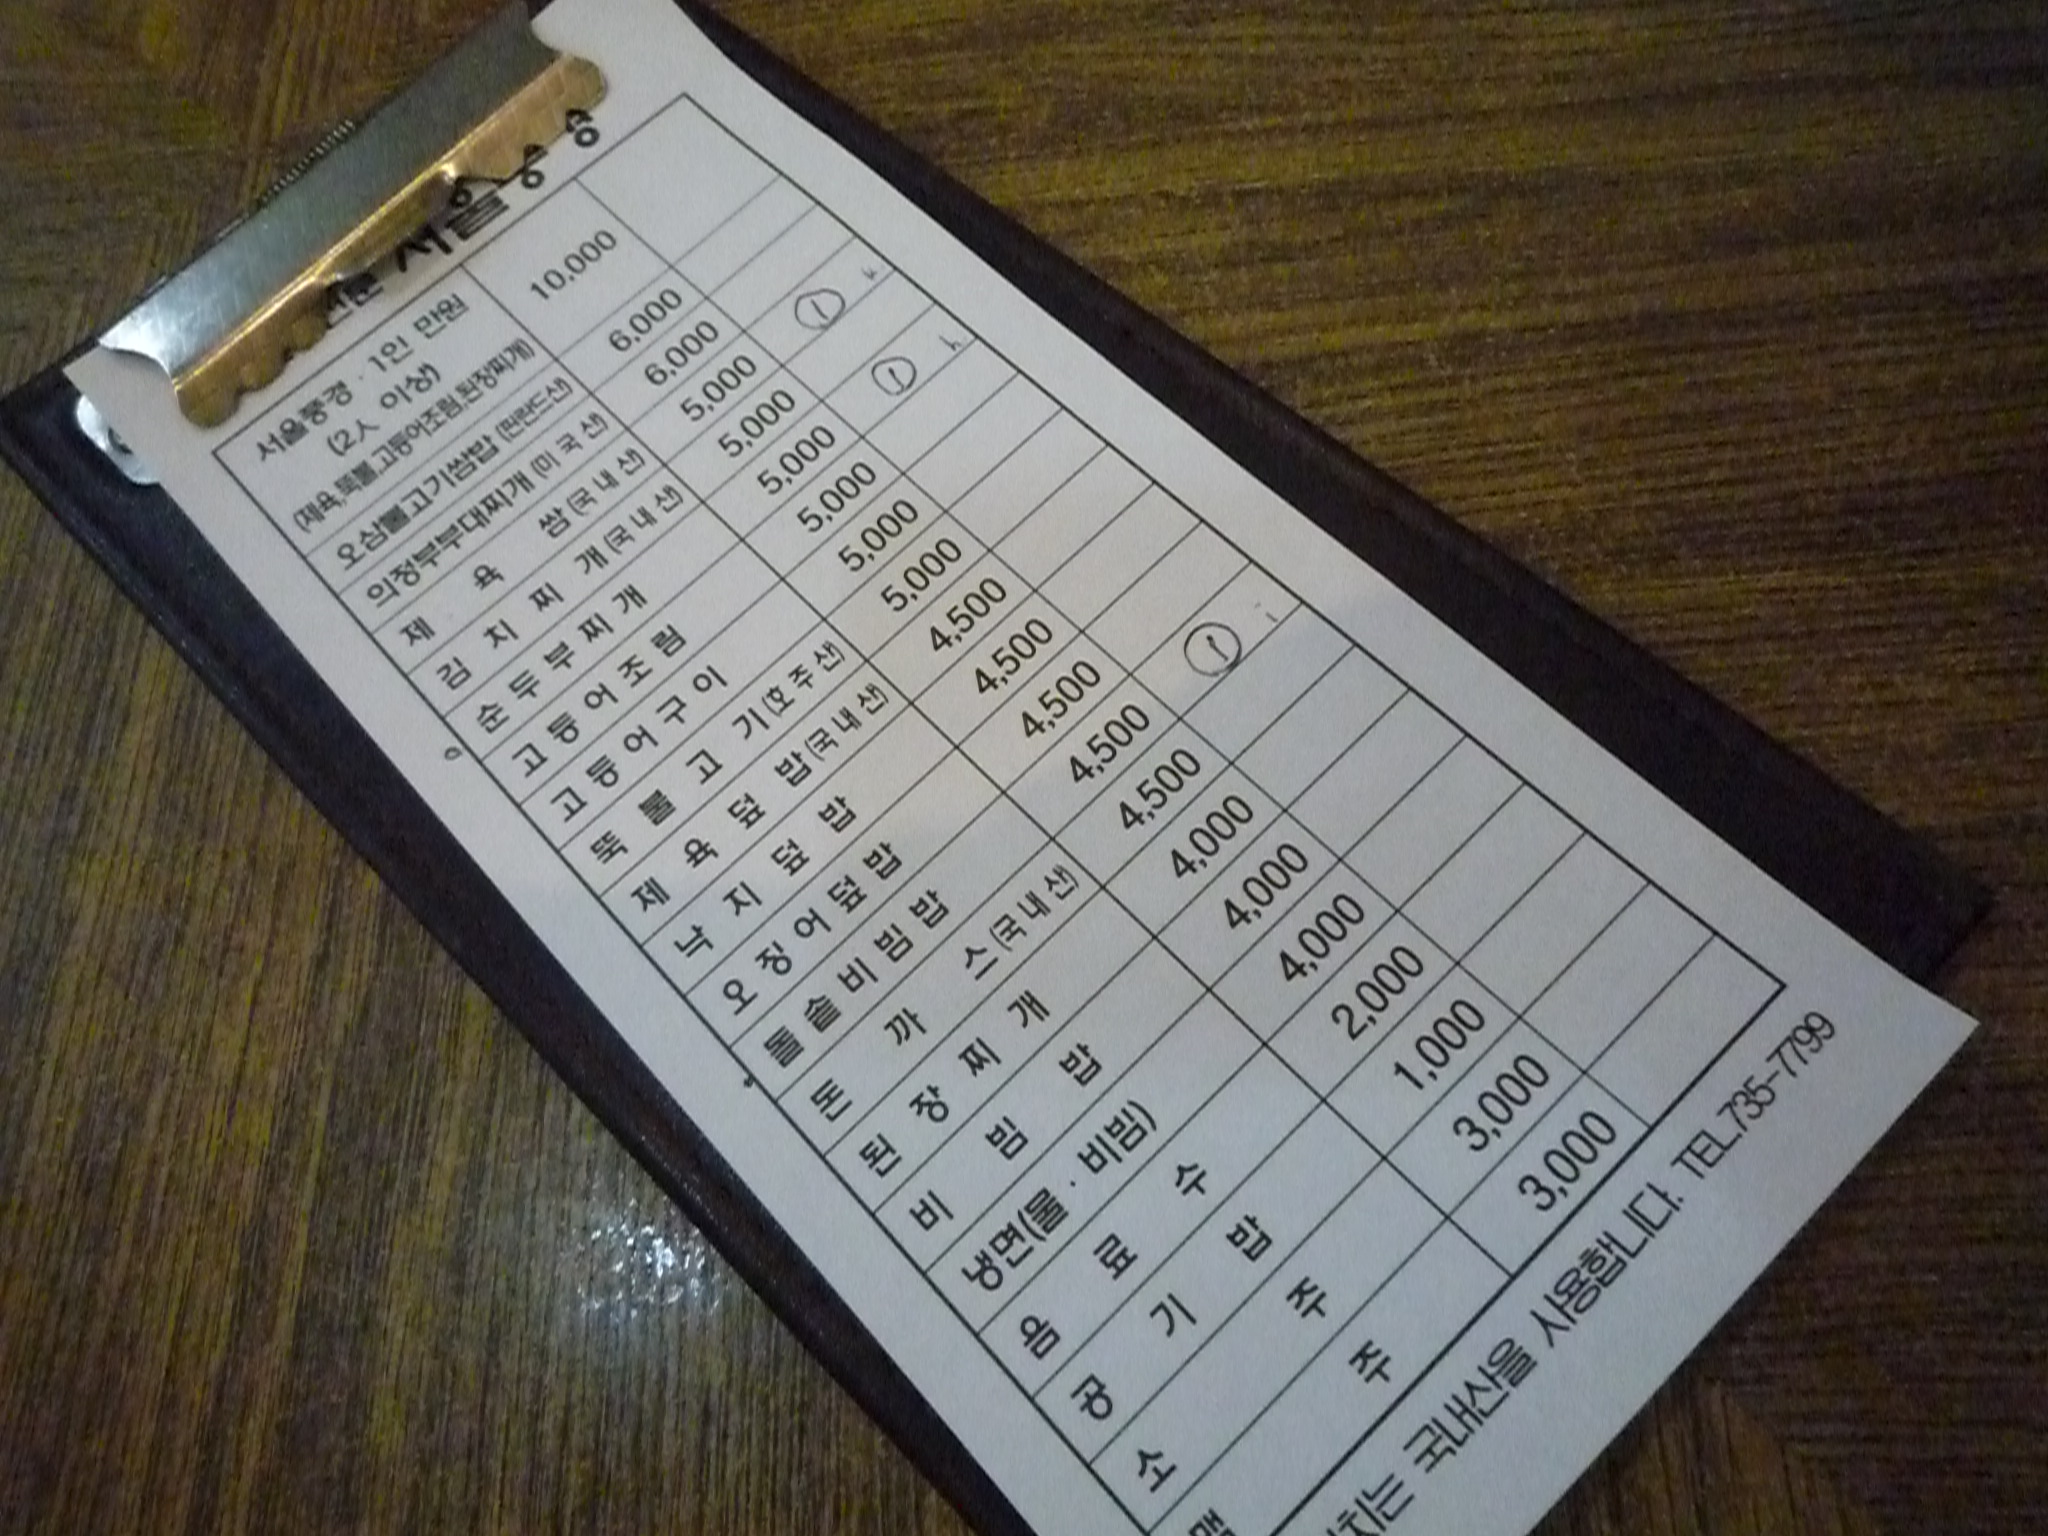 서울풍경 · 1인 만원 10,000
(2人 이상)
(제육,뚝불,고등어조림,된장찌개)
오삼불고기쌈밥 (핀란드산) 6,000
의정부부대찌개 (미국산) 6,000
제육쌈 (국내산) 5,000 1
김치찌개 (국내산) 5,000
순두부찌개 5,000 1
고등어조림 5,000
고등어구이 5,000
뚝불고기 (호주산) 5,000
제육덮밥 (국내산) 4,500
낙지덮밥 4,500
오징어덮밥 4,500
돌솥비빔밥 4,500 1
돈까스 (국내산) 4,500
된장찌개 4,000
비빔밥 4,000
냉면(물 · 비빔) 4,000
음료수 2,000
공기밥 1,000
소주 3,000
맥주 3,000
치는 국내산을 사용합니다. TEL.735-7799